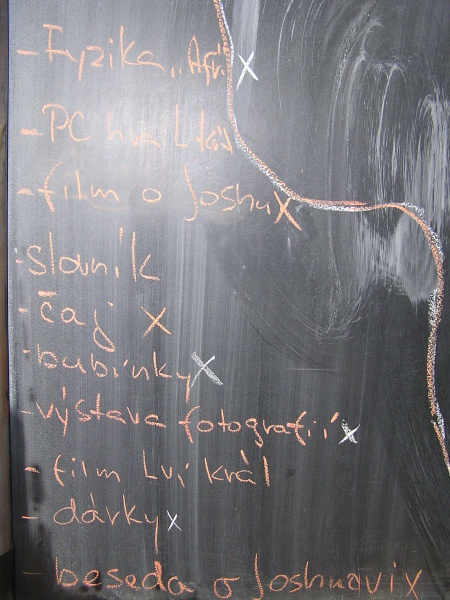 - Fyzika „Afri" x
- PC hra L král
- film o Joshu X
- slovník
- čaj x
- bubínky x
- výstava fotografií x
- film Lví král
- dárky x
- beseda o Joshuovi x